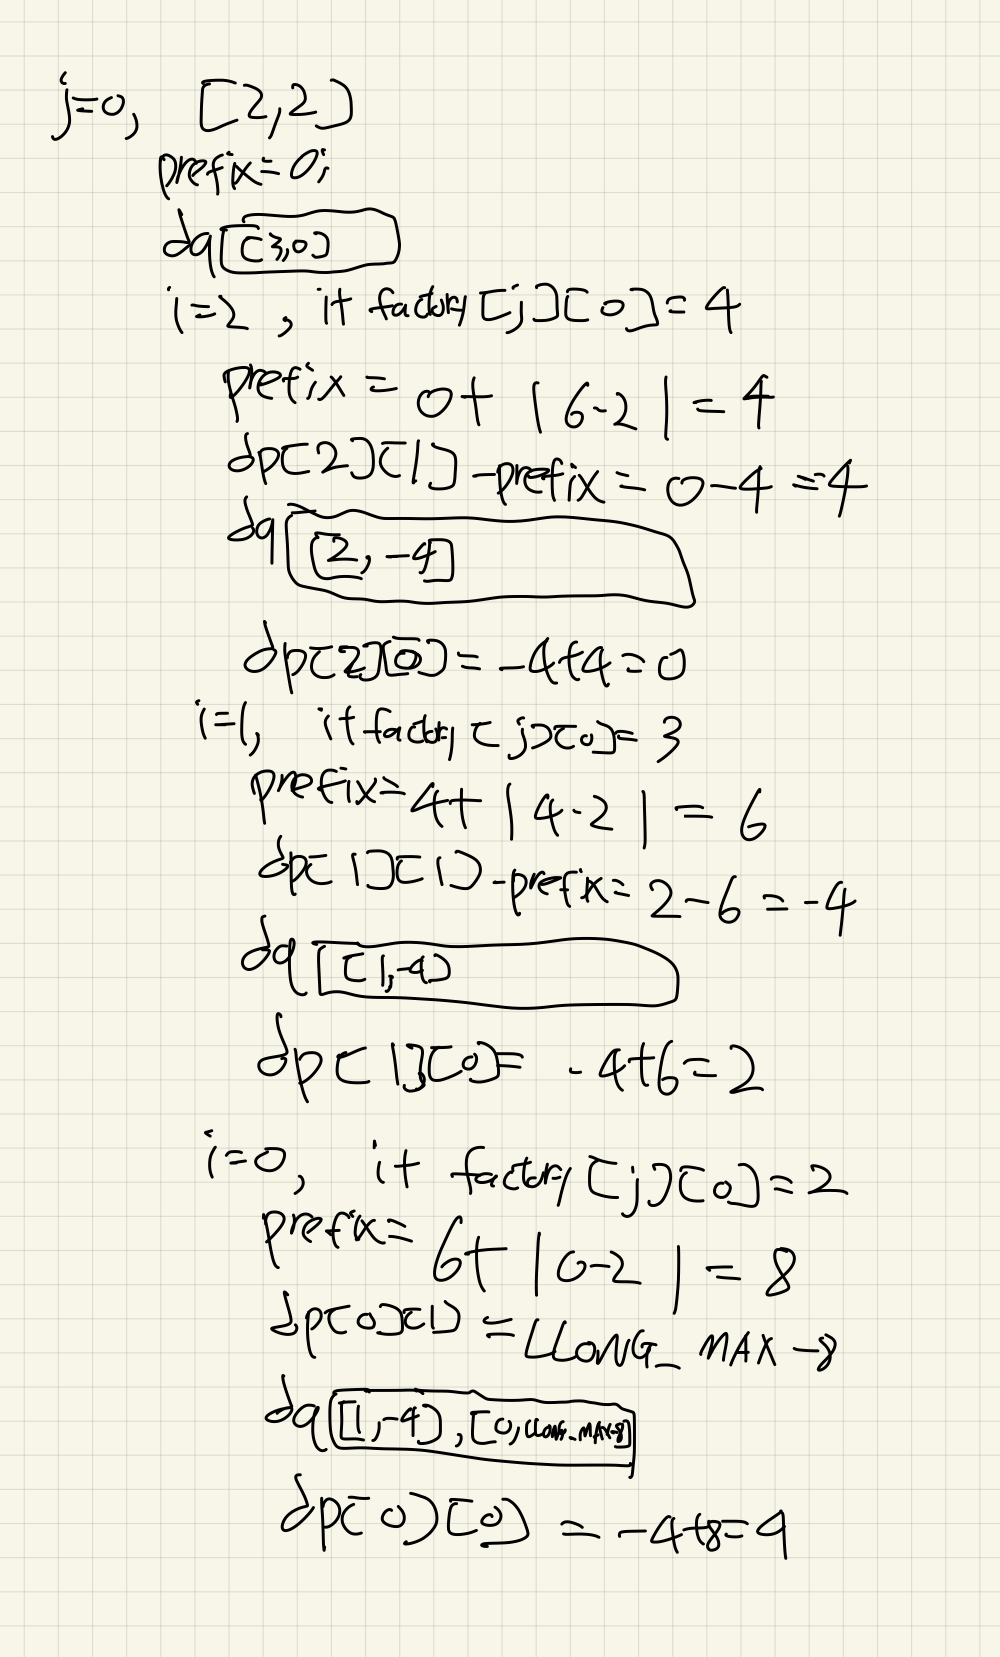 j=0, [2,2]
prefix=0;
dq [3,0]
i=2, it factory[j][0]=4
prefix = 0+ |6-2| = 4
dp[2][1] -prefix = 0-4 =-4
dq [2,-4]
dp[2][0]=-4+4=0
i=1, it factory[j][0]=3
prefix=4+ |4-2| = 6
dp[1][1]-prefix=2-6=-4
dq [1,-4]
dp[1][0]= -4+6=2
i=0, it factory[j][0]=2
prefix= 6+ |0-2| = 8
dp[0][1] =LLONG_MAX-8
dq [1,-4],[0,LLONG_MAX-8]
dp[0][0] =-4+8=4